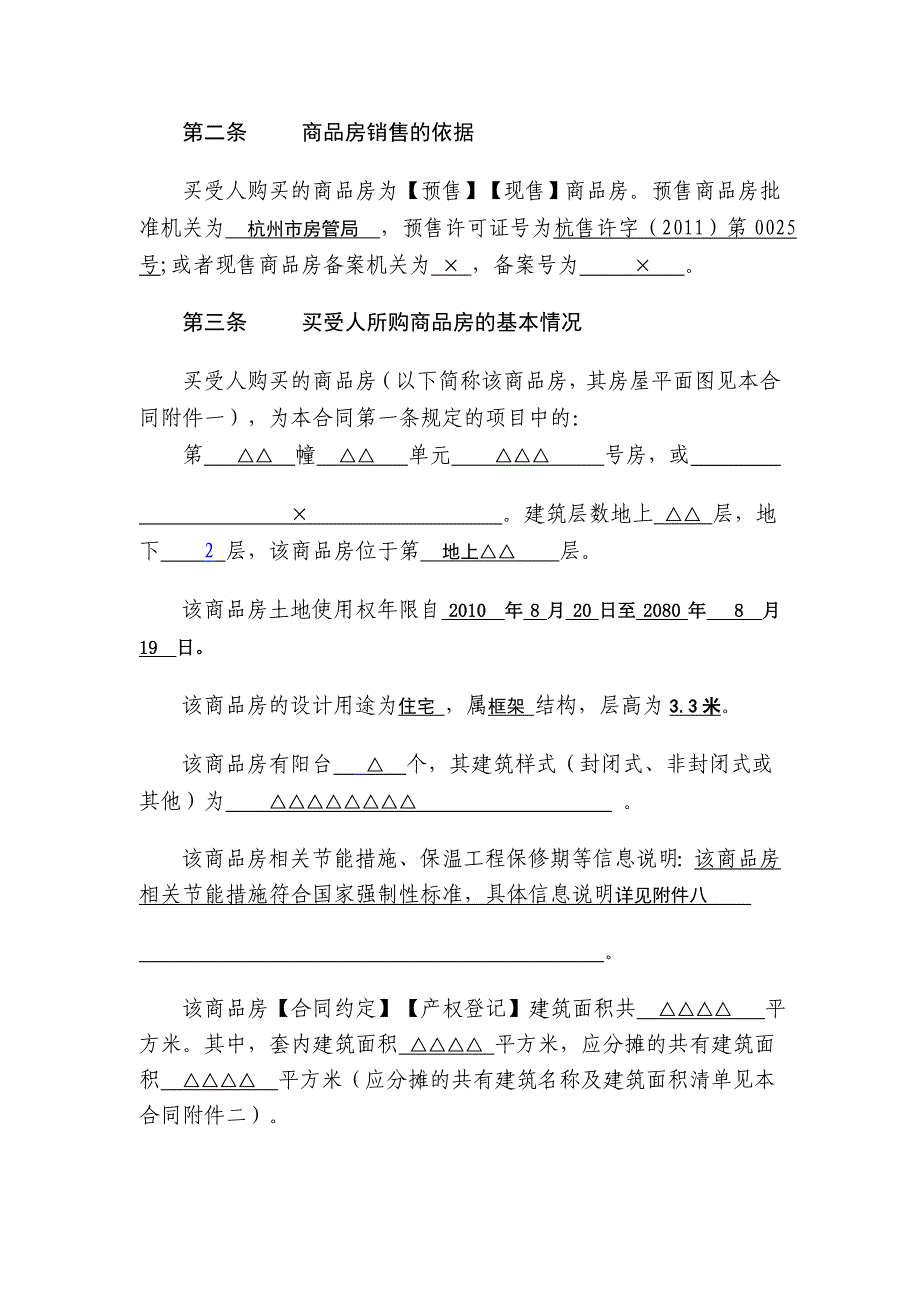 第二条 商品房销售的依据
买受人购买的商品房为【预售】【现售】商品房。预售商品房批
准机关为 杭州市房管局 ，预售许可证号为杭售许字（2011）第 0025
号;或者现售商品房备案机关为 × ，备案号为 × 。
第三条 买受人所购商品房的基本情况
买受人购买的商品房（以下简称该商品房，其房屋平面图见本合
同附件一），为本合同第一条规定的项目中的：
第 △△ 幢 △△ 单元 △△△ 号房，或
× 。建筑层数地上 △△ 层，地
下 2 层，该商品房位于第 地上△△ 层。
该商品房土地使用权年限自 2010 年 8 月 20 日至 2080 年 8 月
19 日。
该商品房的设计用途为住宅 ，属框架 结构，层高为 3.3米。
该商品房有阳台 △ 个，其建筑样式（封闭式、非封闭式或
其他）为 △△△△△△△△ 。
该商品房相关节能措施、保温工程保修期等信息说明：该商品房
相关节能措施符合国家强制性标准，具体信息说明详见附件八
。
该商品房【合同约定】【产权登记】建筑面积共 △△△△ 平
方米。其中，套内建筑面积 △△△△ 平方米，应分摊的共有建筑面
积 △△△△ 平方米（应分摊的共有建筑名称及建筑面积清单见本
合同附件二）。